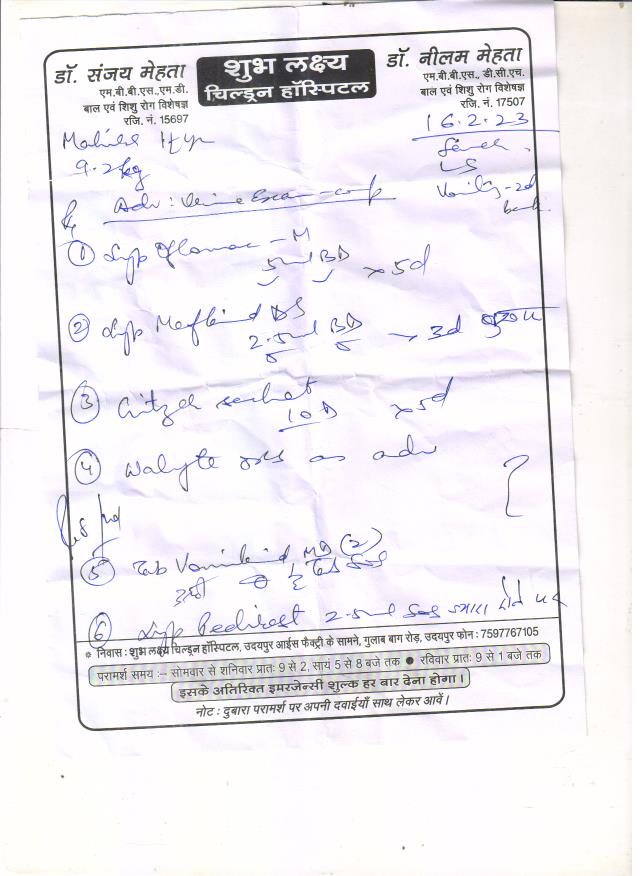 डॉ. संजय मेहता
एम.बी.बी.एस.,एम.डी.
बाल एवं शिशु रोग विशेषज्ञ
रजि. नं. 15697
शुभ लक्ष्य
चिल्ड्रन हॉस्पिटल
डॉ. नीलम मेहता
एम.बी.बी.एस., डी.सी.एच.
बाल एवं शिशु रोग विशेषज्ञ
रजि. नं. 17507
16.2.23
9.2kg
fever
Adv: Urine
① Syp Oflomac - M
5ml BD x 5d
② Syp Mefkind DS
2.5ml BD 3d
③ sachet
1 OD x 5d
④ Walyte ORS as adv
⑤ Tab Vomikind MD (2)
½ Tab SOS
⑥ Syp 2.5ml SOS ज्यादा होने पर
* निवास : शुभ लक्ष्य चिल्ड्रन हॉस्पिटल, उदयपुर आईस फैक्ट्री के सामने, गुलाब बाग रोड़, उदयपुर फोन : 7597767105
परामर्श समय :– सोमवार से शनिवार प्रातः 9 से 2, सायं 5 से 8 बजे तक ● रविवार प्रातः 9 से 1 बजे तक
इसके अतिरिक्त इमरजेन्सी शुल्क हर बार देना होगा।
नोट : दुबारा परामर्श पर अपनी दवाईयाँ साथ लेकर आवें।